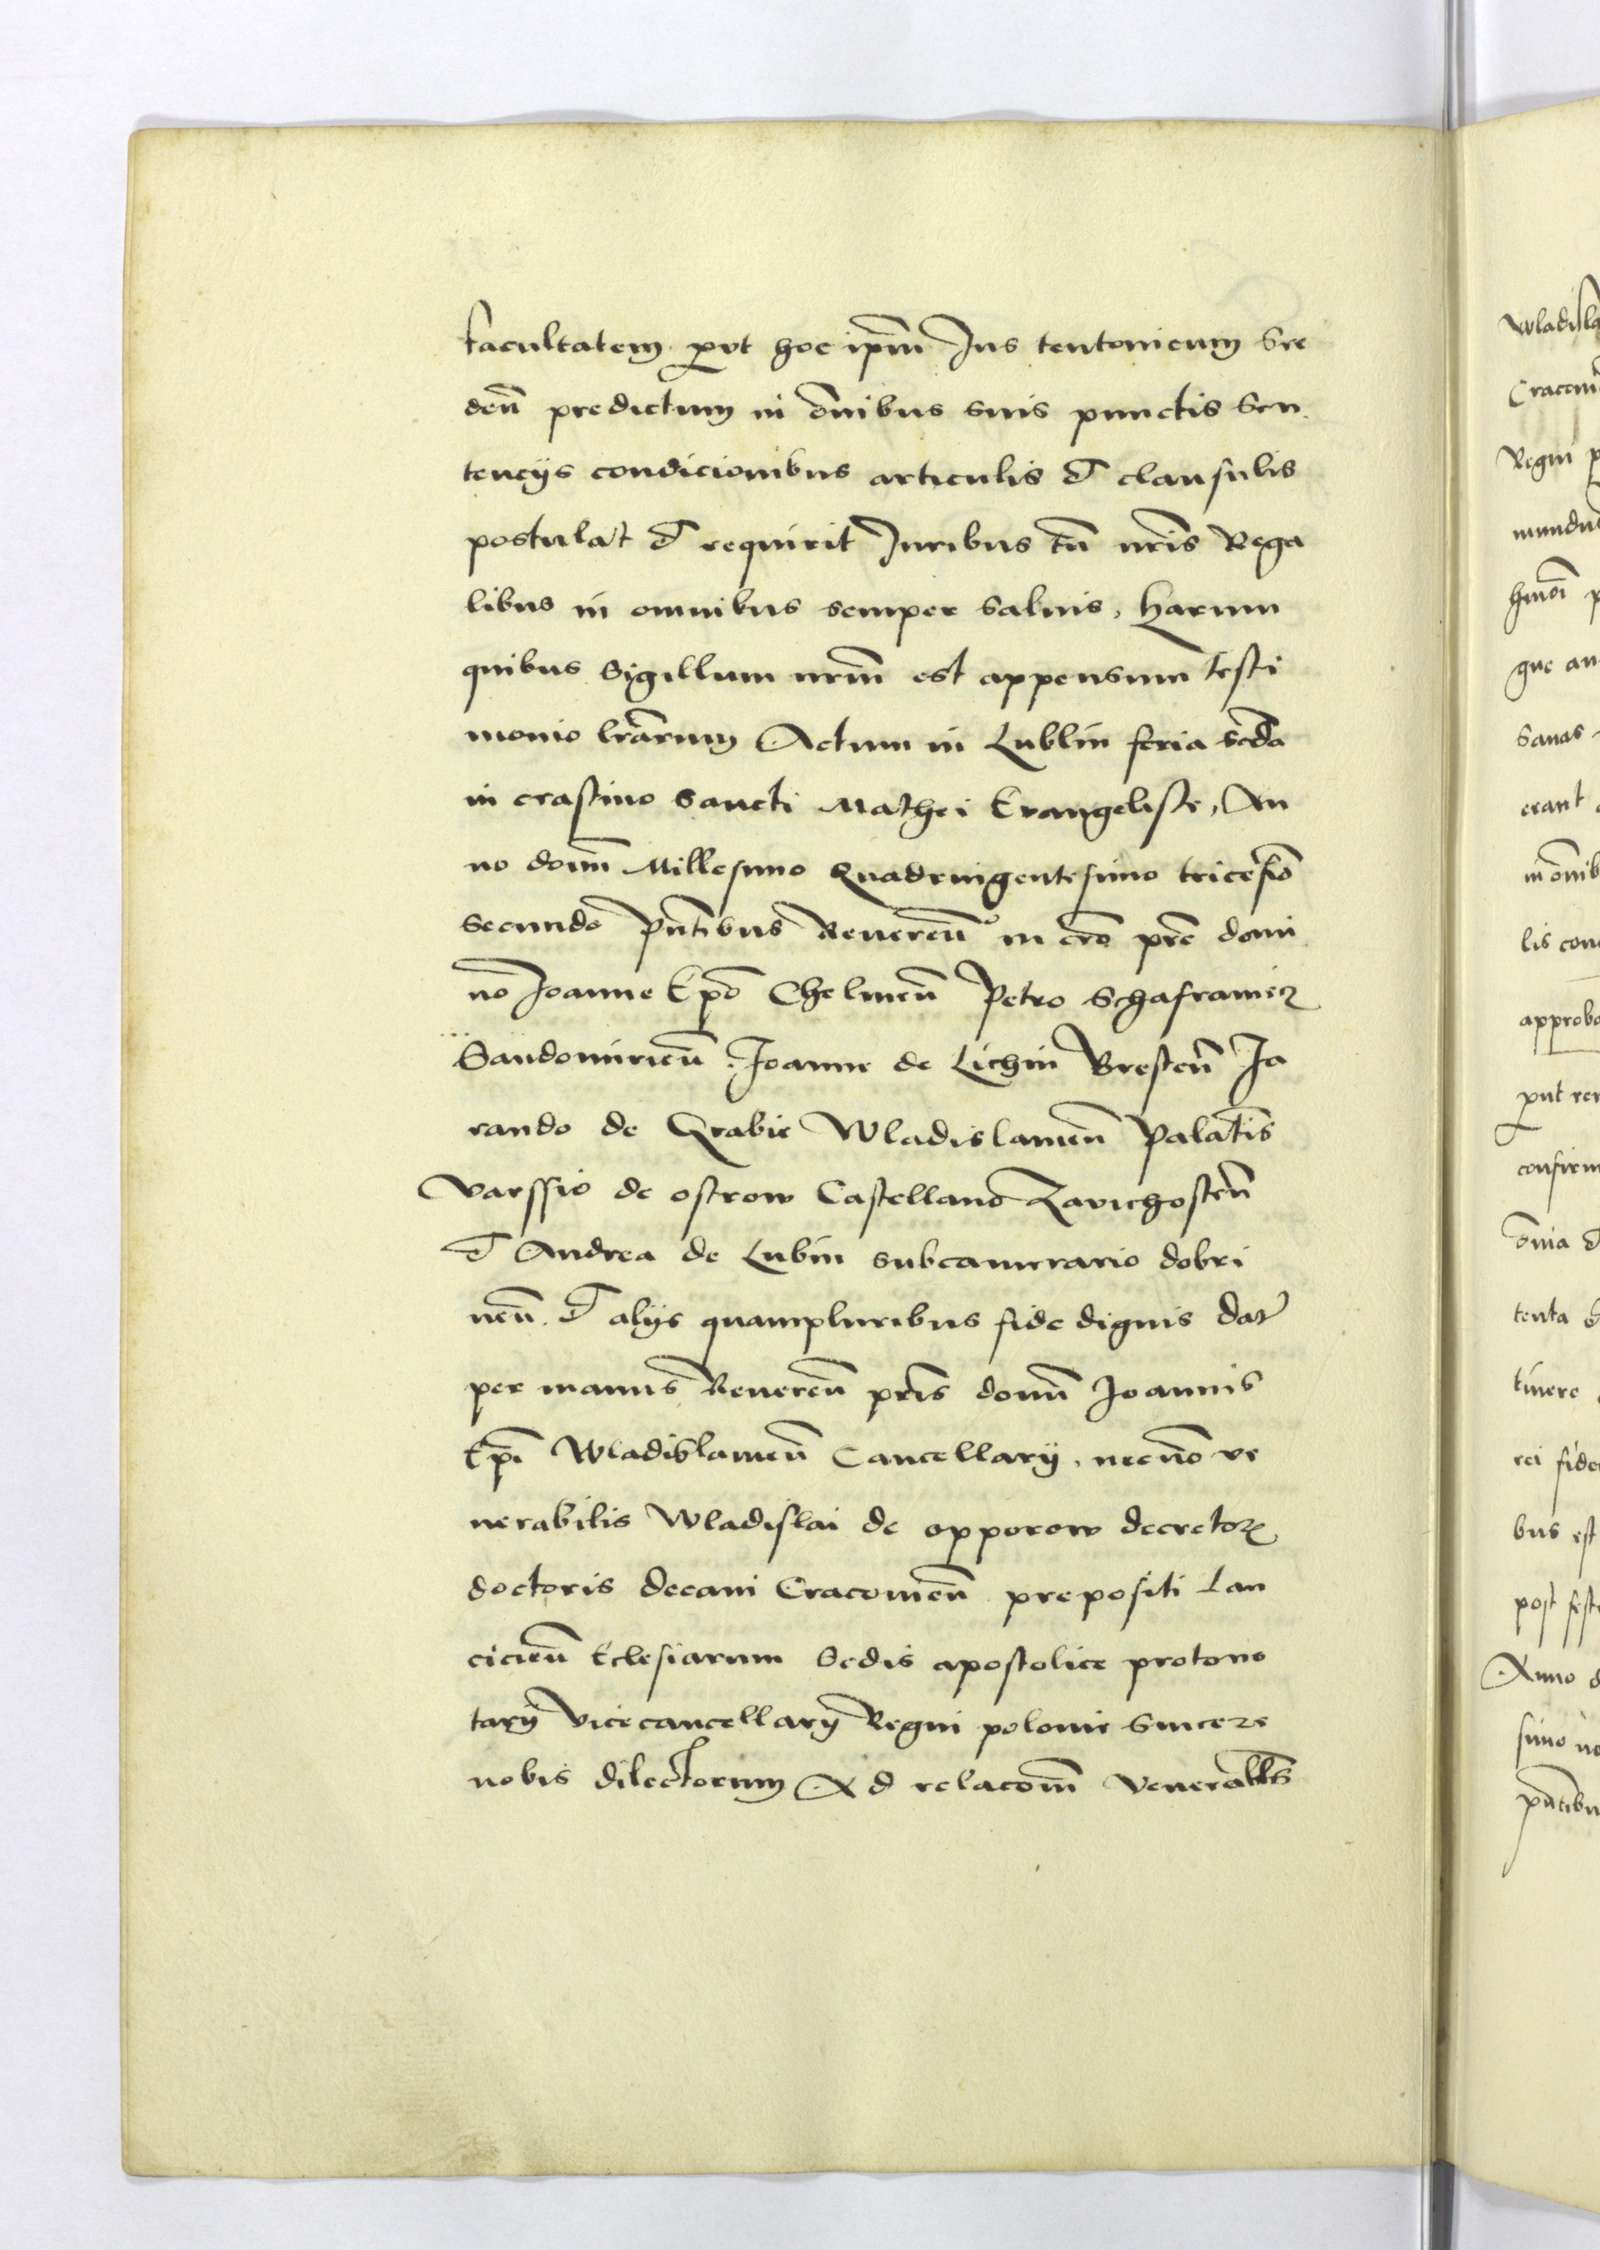 facultatem put hoc ipm̄ Jus teutonicum Sre
deñ predictum in om̄ibus suis punctis Sen
tencijs condicionibus articulis et clausulis
postulat et requirit Juribus tn̄ nr̄is Rega
libus in omnibus semper saluis, harum
quibus Sigillum nrm̄ est appensum testi
monio lrārum Actum in Lublin feria Scdā
in crastino Sancti Mathei Evangeliste, An
no domī Millesimo Quadringentesimo tricesiō
secundo pn̄tibus Reuereñ in cr̄o pr̄e domi
no Joanne Ep̄o Chelmeñ Petro Schafraniecz
Sandomirieñ Joanne de Lichin Bresteñ Ja
rando de Grabie Wladislauieñ Palatīs
Varssio de ostrow Castellano Zavichosteñ
et Andrea de Lubin subcamerario dobri
neñ. et alijs quampluribus fide dignis dat̄
per manus Reuereñ pr̄is domī Joannis
Ep̄i Wladislauieñ Cancellarij, necnō ve
nerabilis Wladislai de opporow decretoꝝ
doctoris decani Cracouieñ prepositi Lan
cicieñ Eclesiarum Sedis apostolice protono
tarij vicecancellarij Regni polonie sincere
nobis dilectorum Ad relacom̄ venerabl̄is
Wladisla
Cracou
Regni p
mundu
hmōi p
que an
Sanas
erant
in om̄ib
lis con
approbo
put re
confirm
om̄ia et
tenta
tinere
rei fide
bus est
post fest
Anno d
simo no
pn̄tibu